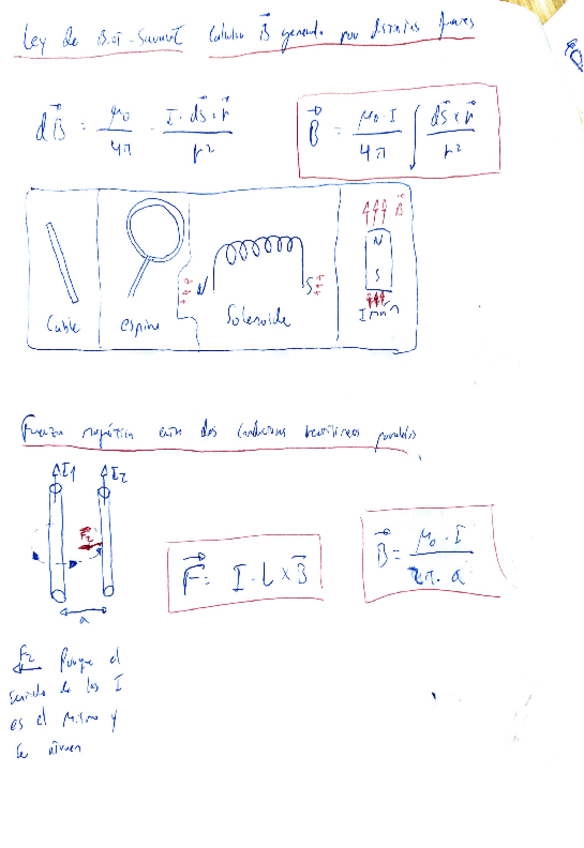 Ley de Biot-Savart Calcular B⃗ generado por distintas formas
dB⃗ = μ₀/4π · I · ds⃗ × r⃗ / r²
B⃗ = μ₀ · I / 4π ∫ ds⃗ × r⃗ / r²
B⃗
N
S
N
S
Cable espira Solenoide Imán
Fuerza magnética entre dos conductores rectilíneos paralelos
I1 I2
F⃗₂
a
F⃗ = I · L × B⃗
B⃗ = μ₀ · I / 2π · a
F₂ Porque el
sentido de las I
es el mismo y
se atraen